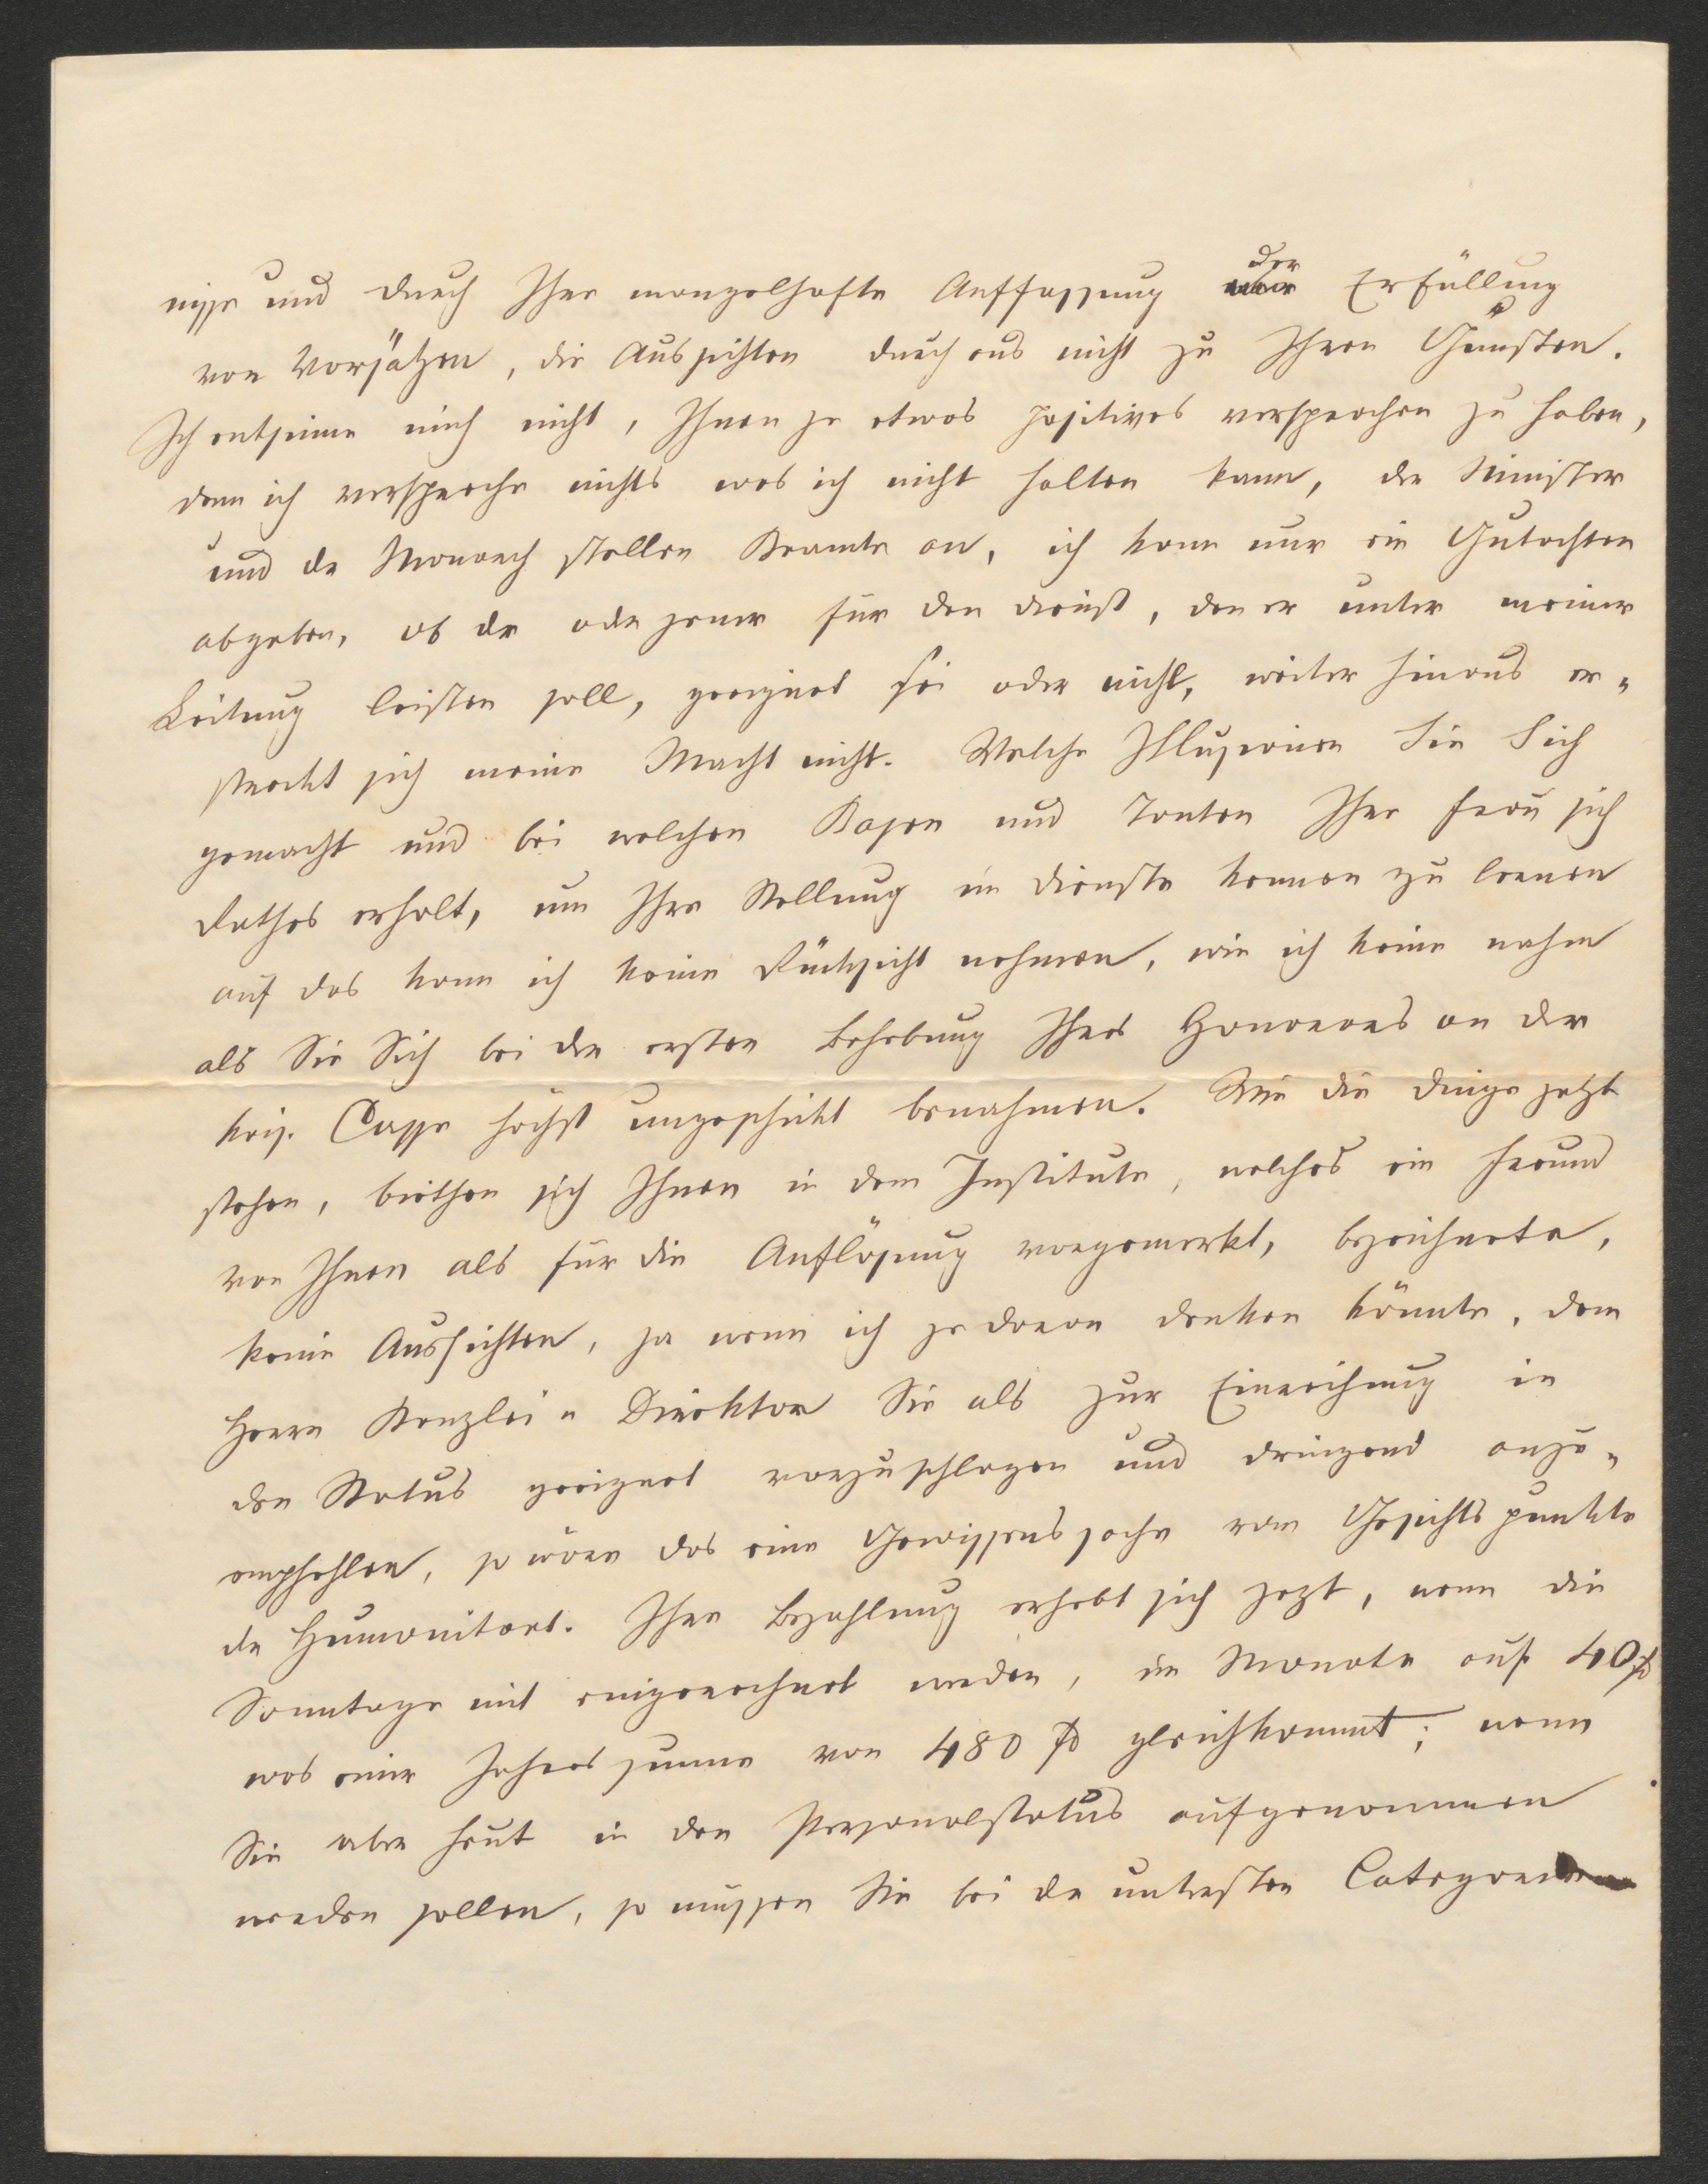 nisse und durch Ihre mangelhafte Auffassung der Erfüllung
von Vorsätzen, die Aussichten durchaus nicht zu Ihren Gunsten.
Ich entsinne mich nicht, Ihnen je etwas positives versprochen zu haben,
denn ich verspreche nichts was ich nicht halten kann, der Minister
und der Monarch stellen Beamte an, ich kann nur ein Gutachten
abgeben, ob der oder jener für den Dienst, den er unter meiner
Leitung leisten soll, geeignet sei oder nicht, weiter hinaus er-
streckt sich meine Macht nicht. Welche Illusionen Sie Sich
gemacht und bei welchen Basen und Tanten Ihre Frau sich
Rathes erholt, um Ihre Stellung im Dienste kennen zu lernen
auf das kann ich keine Rücksicht nehmen, wie ich keine nahm
als Sie Sich bei der ersten Behebung Ihres Honorares an der
kais. Casse höchst ungeschickt benahmen. Wie die Dinge jetzt
stehen, biethen sich Ihnen in dem Institute, welches ein Freund
von Ihnen als für die Auflösung vorgemerkt, bezeichnete,
keine Aussichten, ja wenn ich je daran denken könnte, dem
Herrn Kanzlei-Direktor Sie als zur Einreihung in
den Status geeignet vorzuschlagen und dringend anzu-
empfehlen, so wäre das eine Gewissenssache vom Gesichtspunkte
der Humanitaet. Ihre Bezahlung erhebt sich jezt, wenn die
Sonntage mit eingerechnet werden, im Monate auf 40 f
was einer Jahressumme von 480 f gleichkommt; wenn
Sie aber heut in den Personalstatus aufgenommen
werden sollen, so müssen Sie bei der untersten Categorie